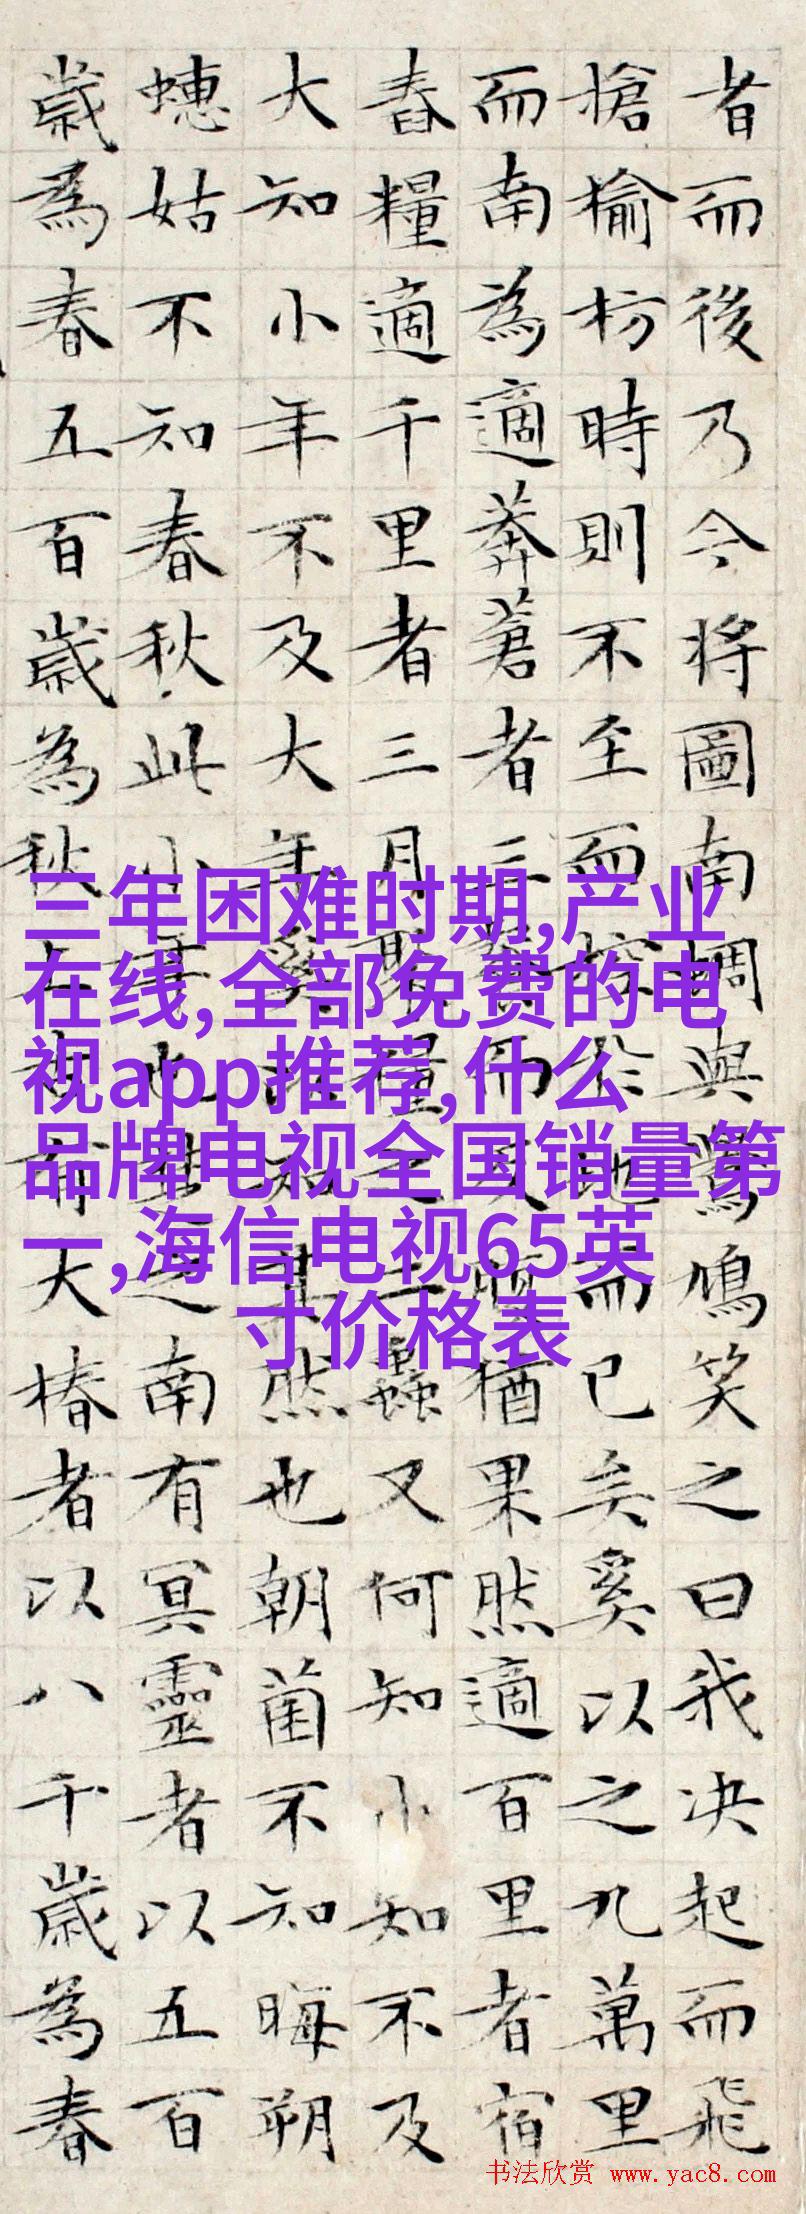 者而後乃今將圖南蜩與鷽鳩笑之曰我决起而飛
搶榆枋時則不至而控於地而已矣奚以之九萬里
而南為適莽蒼者三而反腹猶果然適百里者宿
舂糧適千里者三月聚糧之二蟲又何知小知不及
大知小年不及大年奚以知其然也朝菌不知晦朔
蟪姑不知春秋此小年也楚之南有冥靈者以五百
歲為春五百歲為秋上古有大椿者以八千歲為春
三年困难时期,产业
在线,全部免费的电
视app推荐,什么
品牌电视全国销量第
一,海信电视65英
寸价格表
书法欣赏 www.yac8.com